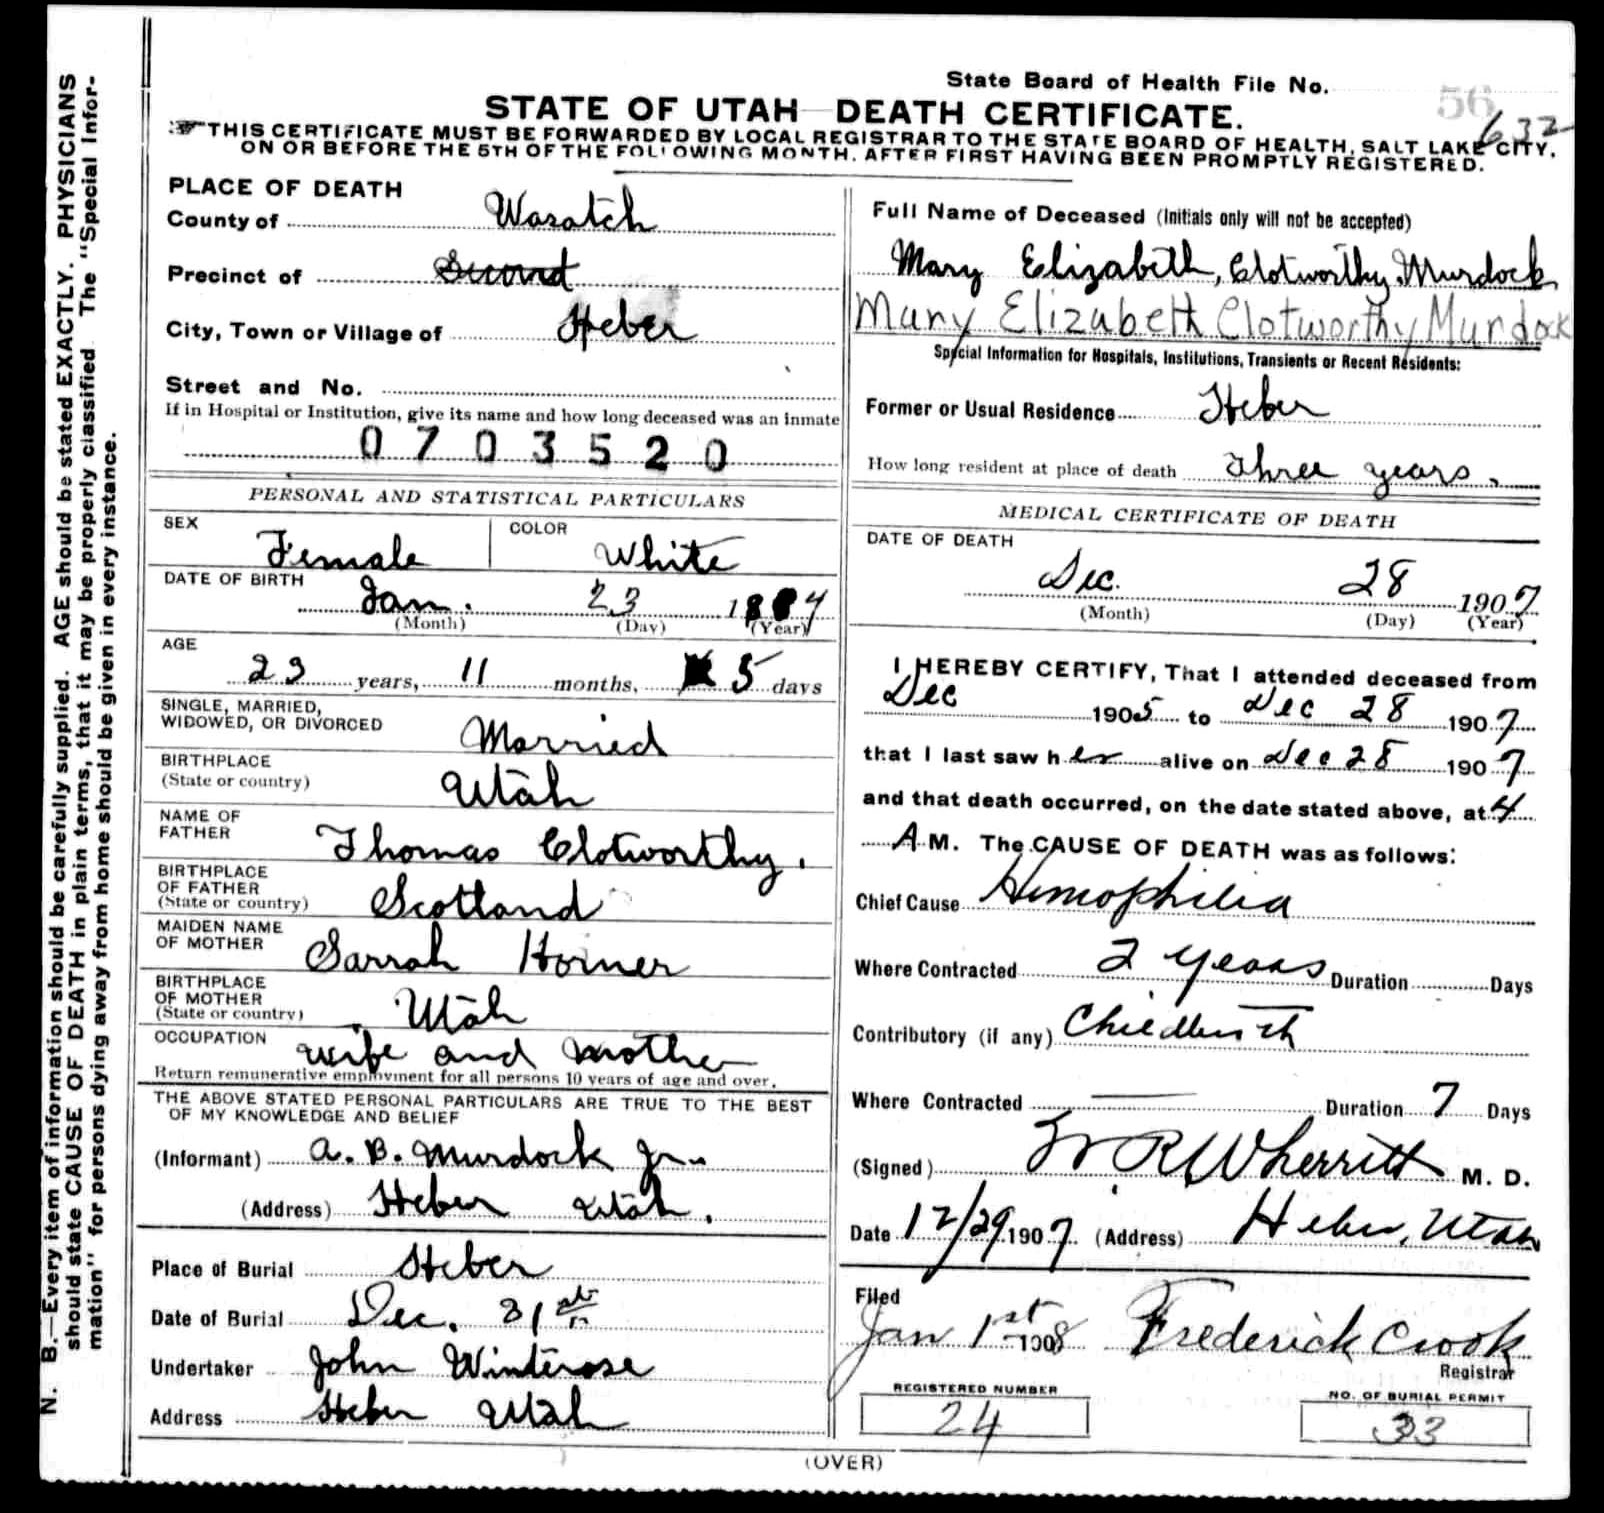 State Board of Health File No. 56
632
STATE OF UTAH DEATH CERTIFICATE.
THIS CERTIFICATE MUST BE FORWARDED BY LOCAL REGISTRAR TO THE STATE BOARD OF HEALTH, SALT LAKE CITY,
ON OR BEFORE THE 5TH OF THE FOLLOWING MONTH, AFTER FIRST HAVING BEEN PROMPTLY REGISTERED.
N. B.—Every item of information should be carefully supplied. AGE should be stated EXACTLY. PHYSICIANS
should state CAUSE OF DEATH in plain terms, that it may be properly classified. The "Special Infor-
mation" for persons dying away from home should be given in every instance.
PLACE OF DEATH
County of Wasatch
Precinct of Second
City, Town or Village of Heber
Street and No.
If in Hospital or Institution, give its name and how long deceased was an inmate
0703520
PERSONAL AND STATISTICAL PARTICULARS
SEX Female COLOR White
DATE OF BIRTH Jan. 23 1884
(Month) (Day) (Year)
AGE
23 years, 11 months, 5 days
SINGLE, MARRIED,
WIDOWED, OR DIVORCED Married
BIRTHPLACE
(State or country) Utah
NAME OF
FATHER Thomas Clotworthy.
BIRTHPLACE
OF FATHER
(State or country) Scotland
MAIDEN NAME
OF MOTHER Sarrah Horner
BIRTHPLACE
OF MOTHER
(State or country) Utah
OCCUPATION wife and mother
Return remunerative employment for all persons 10 years of age and over.
THE ABOVE STATED PERSONAL PARTICULARS ARE TRUE TO THE BEST
OF MY KNOWLEDGE AND BELIEF
(Informant) A. B. Murdock Jr.
(Address) Heber Utah.
Place of Burial Heber
Date of Burial Dec. 31st
Undertaker John Winterose
Address Heber Utah
Full Name of Deceased (Initials only will not be accepted)
Mary Elizabeth, Clotworthy Murdock
Mary Elizabeth Clotworthy Murdock
Special Information for Hospitals, Institutions, Transients or Recent Residents:
Former or Usual Residence Heber
How long resident at place of death three years.
MEDICAL CERTIFICATE OF DEATH
DATE OF DEATH
Dec. 28 1907
(Month) (Day) (Year)
I HEREBY CERTIFY, That I attended deceased from
Dec 1905 to Dec 28 1907
that I last saw her alive on Dec 28 1907
and that death occurred, on the date stated above, at 4
A.M. The CAUSE OF DEATH was as follows:
Chief Cause Hemophilia
Where Contracted 2 years Duration Days
Contributory (if any) Childbirth
Where Contracted — Duration 7 Days
(Signed) W R Wherritt M. D.
Date 12/29 1907. (Address) Heber, Utah
Filed
Jan 1st 1908 Frederick Crook
Registrar
REGISTERED NUMBER
24
NO. OF BURIAL PERMIT
33
(OVER)